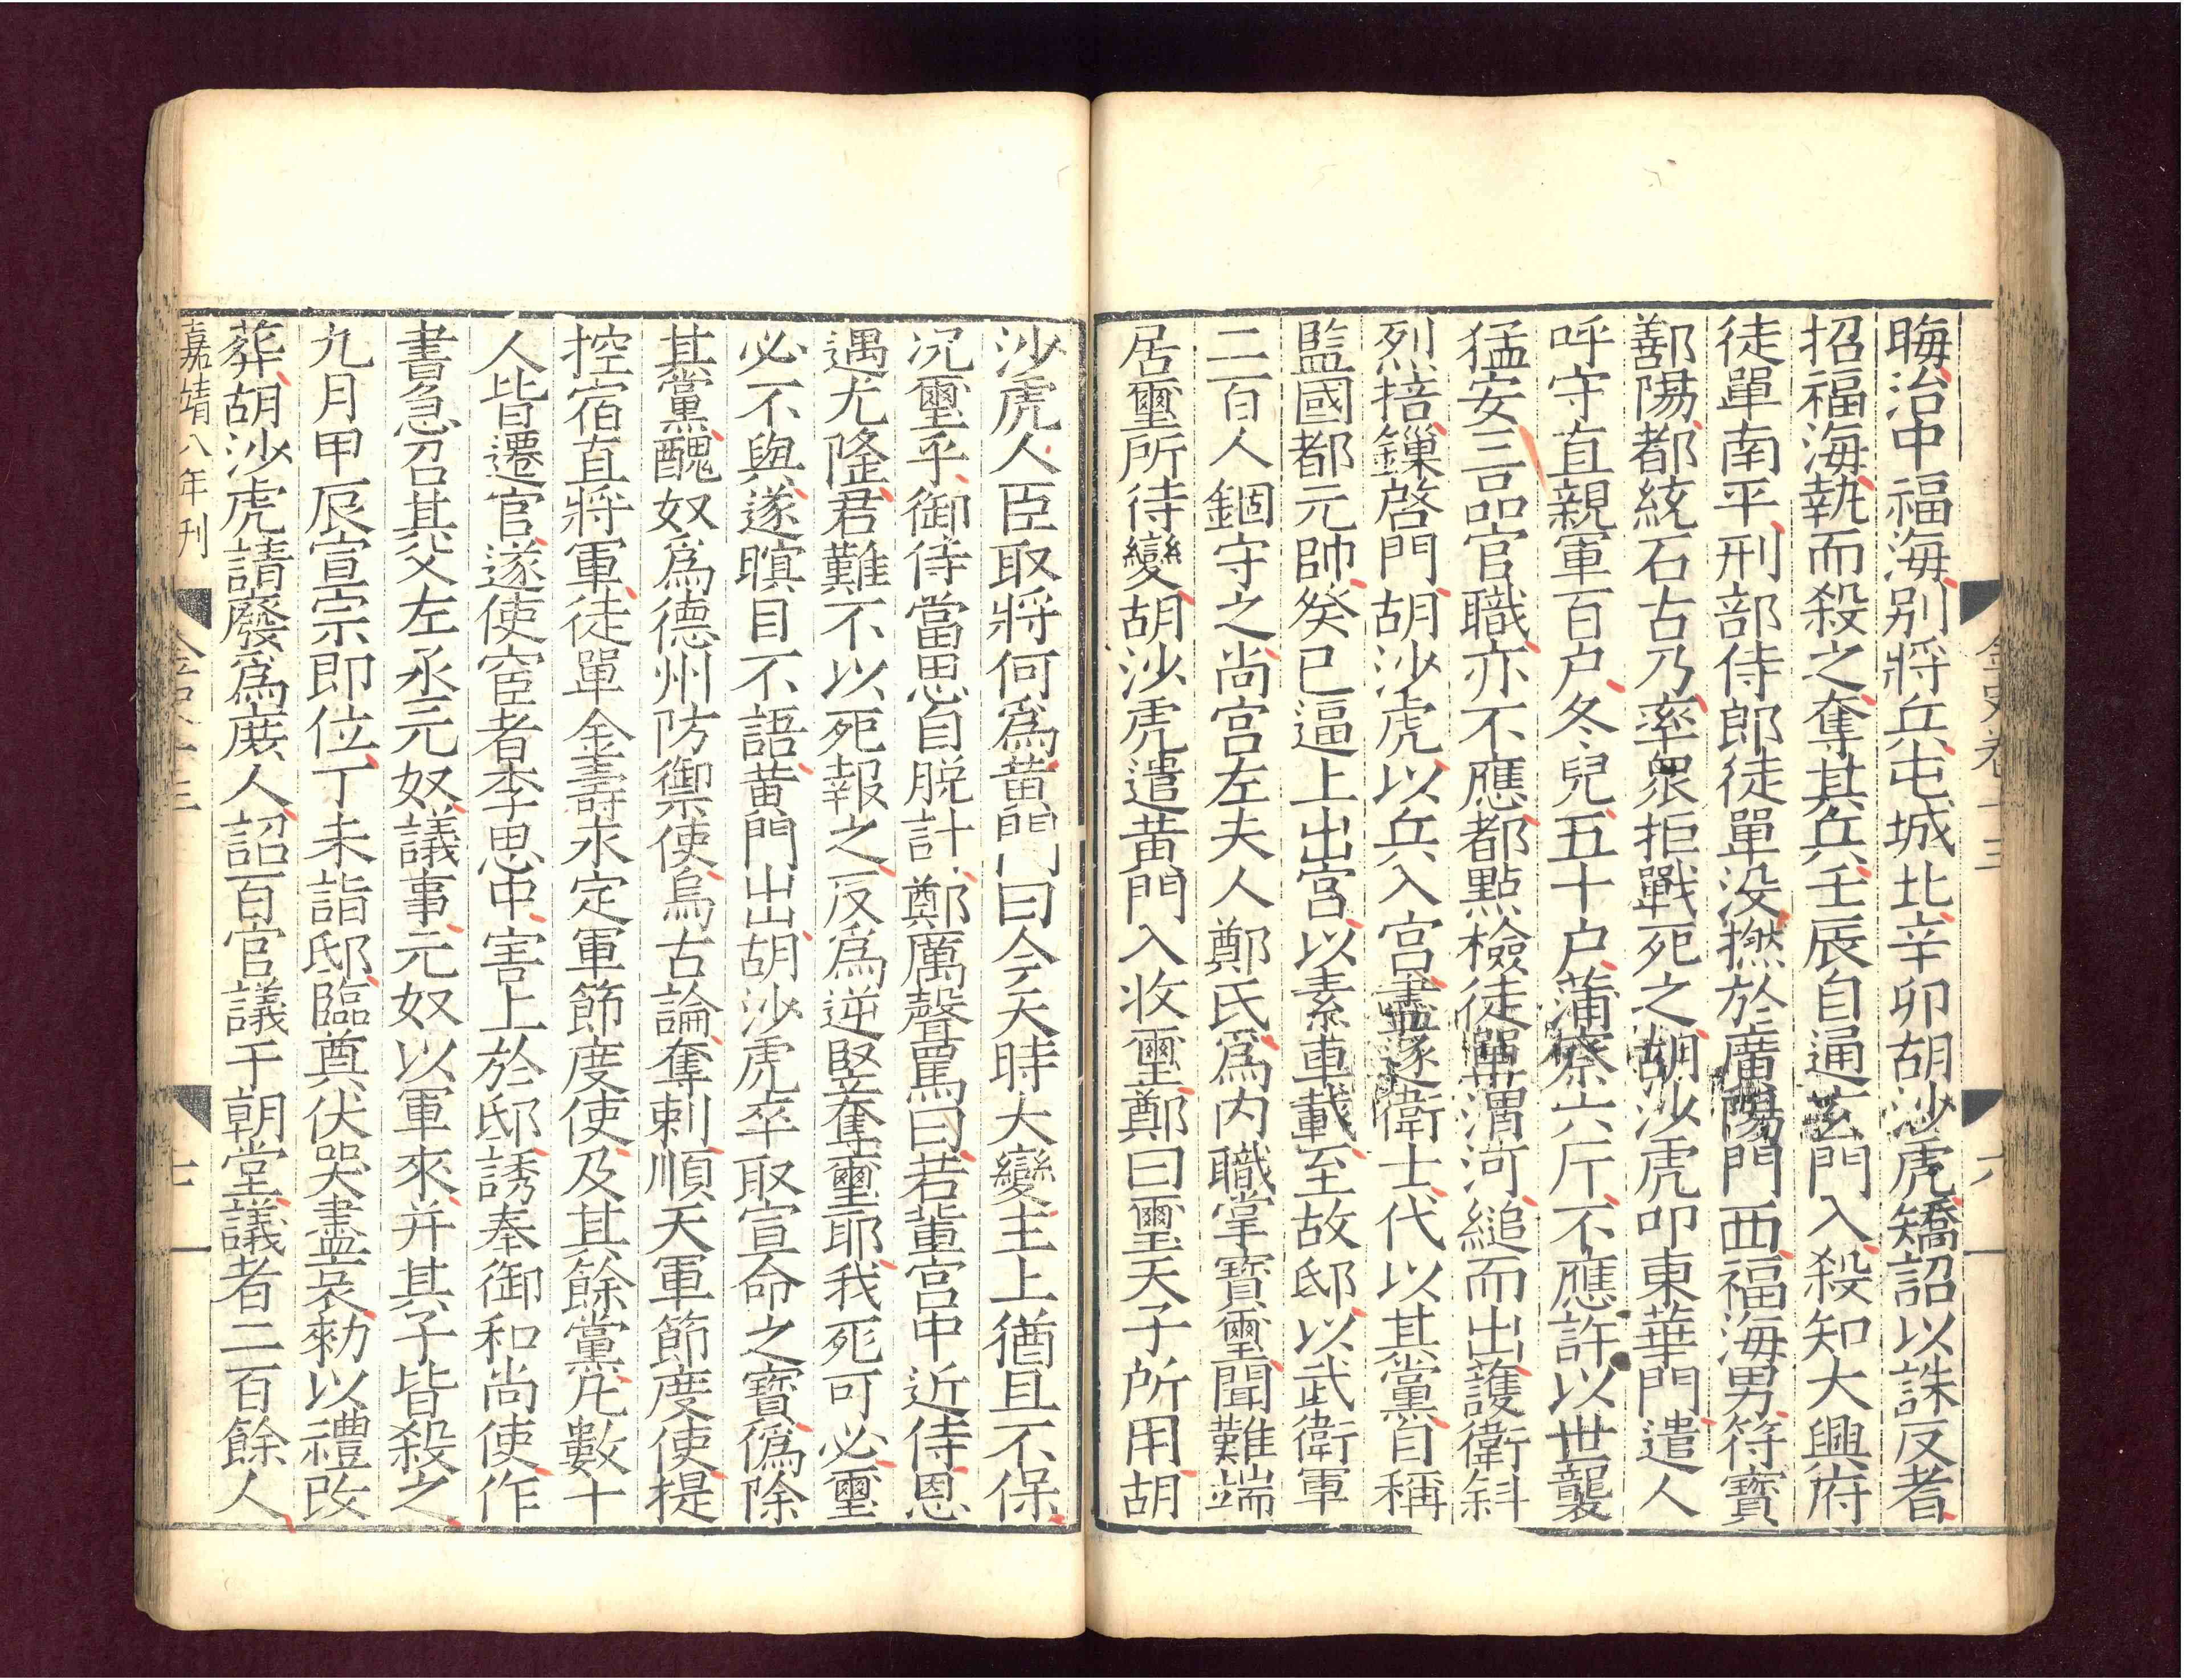 晦治中福海别將兵屯城北辛卯胡沙虎矯詔以誅反者
招福海執而殺之奪其兵壬辰自通玄門入殺知大興府
徒單南平刑部侍郎徒單没撚於廣陽門西福海男符寶
鄯陽都統石古乃率衆拒戰死之胡沙虎叩東華門遣人
呼守直親軍百户冬兒五十户蒲察六斤不應許以世襲
猛安三品官職亦不應都點檢徒單渭河縋而出護衛斜
烈掊鏁啓門胡沙虎以兵入宫盡逐衛士代以其黨自稱
監國都元帥癸巳逼上出宫以素車載至故邸以武衛軍
二百人錮守之尚宫左夫人鄭氏爲内職掌寶璽聞難端
居璽所待變胡沙虎遣黄門入收璽鄭曰璽天子所用胡
金史卷十三
六
沙虎人臣取將何爲黄門曰今天時大變主上猶且不保
况璽乎御侍當思自脱計鄭厲聲罵曰若輩宫中近侍恩
遇尤隆君難不以死報之反爲逆竪奪璽耶我死可必璽
必不與遂瞑目不語黄門出胡沙虎卒取宣命之寶僞除
其黨醜奴爲德州防禦使烏古論奪剌順天軍節度使提
控宿直將軍徒單金壽永定軍節度使及其餘黨凡數十
人皆遷官遂使宦者李思中害上於邸誘奉御和尚使作
書急召其父左丞元奴議事元奴以軍來并其子皆殺之
九月甲辰宣宗即位丁未詣邸臨奠伏哭盡哀勑以禮改
葬胡沙虎請廢爲庶人詔百官議于朝堂議者二百餘人
嘉靖八年刊
金史十三
七